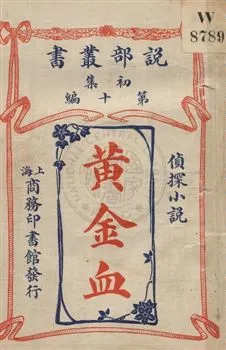 W
8789
説部叢書
初集
第十編
偵探小説
黃金血
上海
商務印書館發行